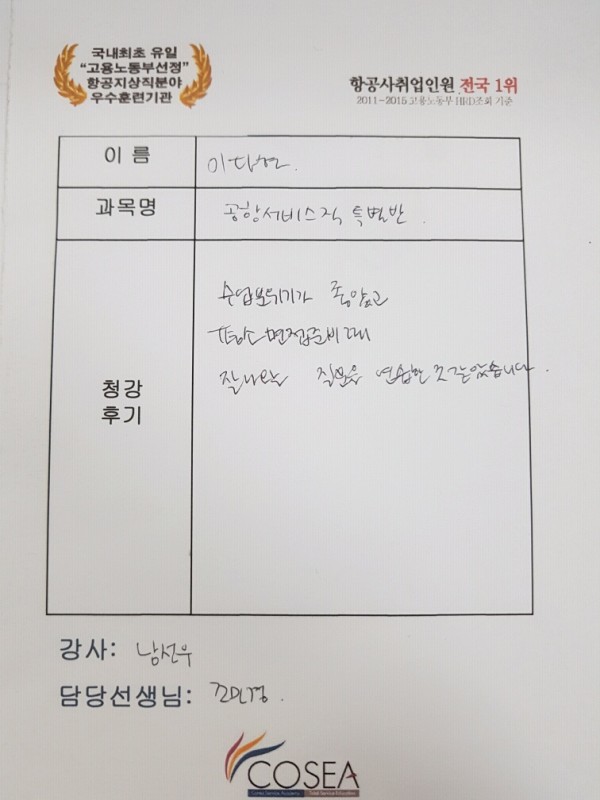 국내최초 유일
"고용노동부선정"
항공지상직분야
우수훈련기관
항공사취업인원 전국 1위
2011-2015 고용노동부 HRD조회 기준
이 름
과목명 공항서비스직 특별반.
수업분위기가 좋았고
평소 면접준비 때
잘나오는 질문을 연습한 것 같았습니다.
청강
후기
강사: 남선우
담당선생님:
COSEA
Korea Service Academy Total Service Education